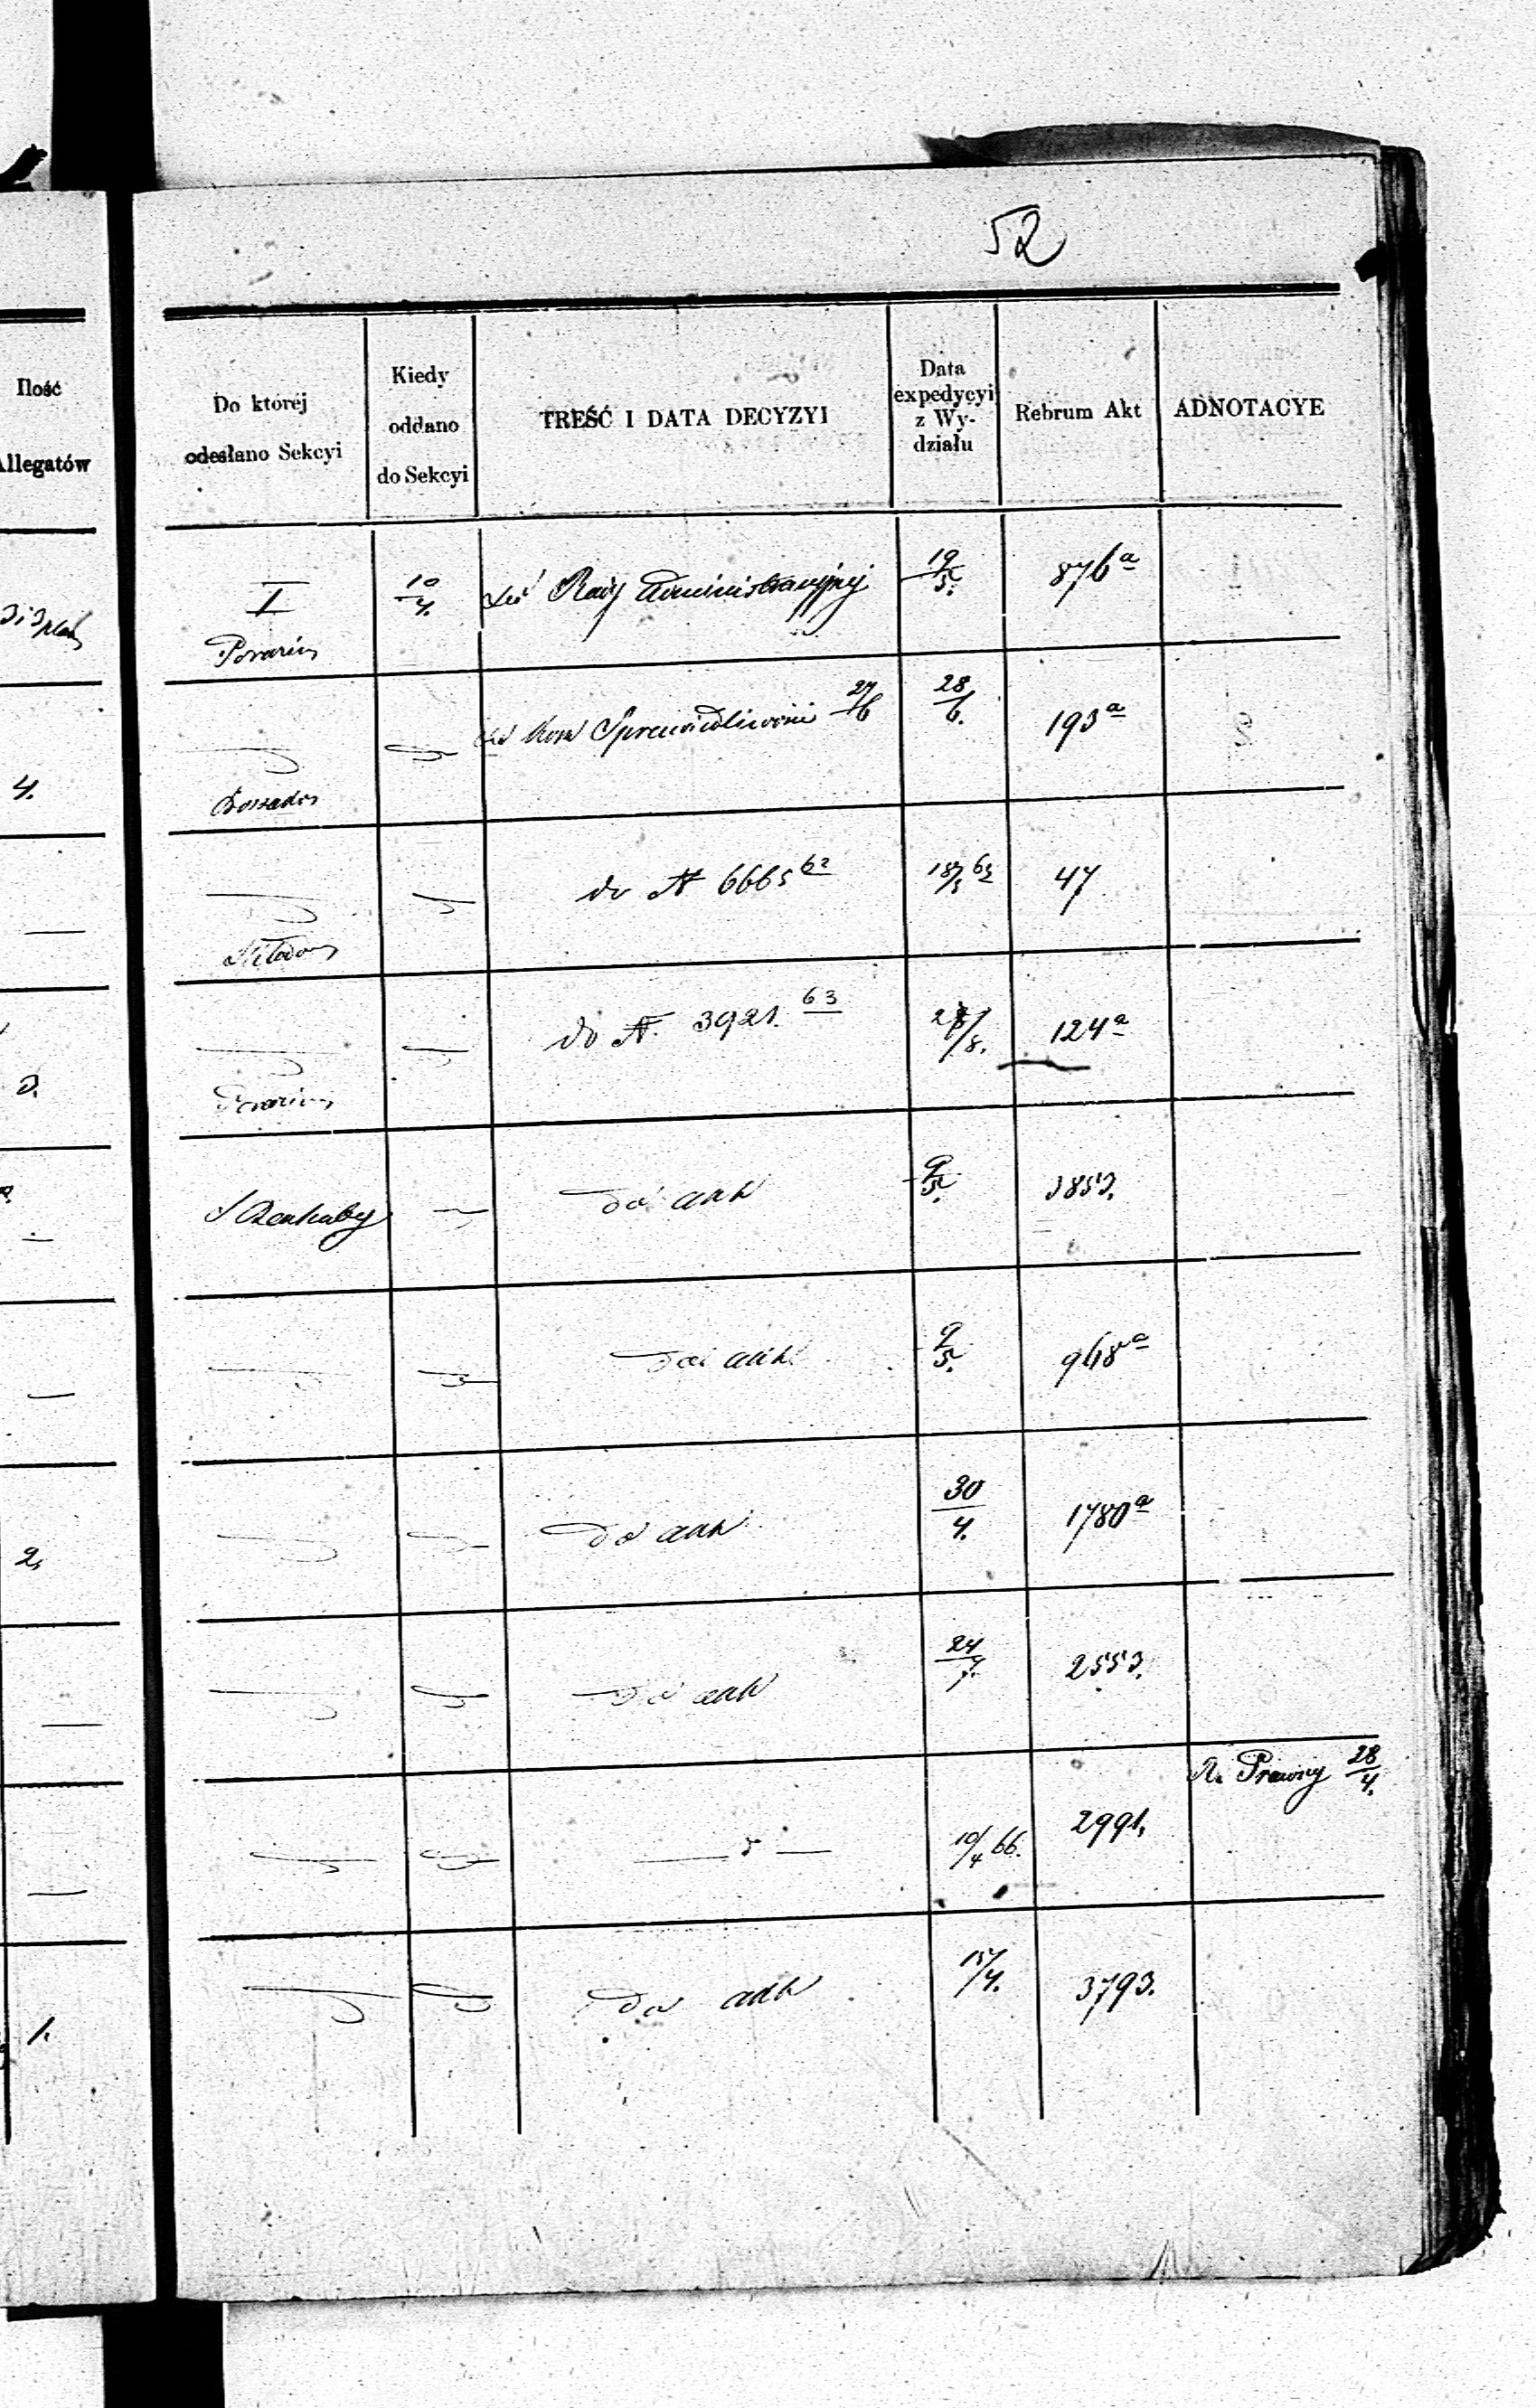 52
Ilość
Allegatów
Do któréj
odesłano Sekcyi
Kiedy
oddano
do Sekcyi
TREŚĆ I DATA DECYZYI
Data
expedycyi
z Wy-
działu
Rebrum Akt
ADNOTACYE
I
10/4.
do Rady Administracyjnej
19/5.
876a
4.
do Kom Sprawiedliwości 27/6
28/6.
193a
do N 6665 62
18/5 63
47
3.
do N. 3921. 63
/8.
124a
do akt
9/5.
3853.
do akt
9/5.
968a
2,
do akt
30/4.
1780a
do akt
24/7.
2553.
— d —
10/4 66.
2991,
Prawny 28/4.
1.
do akt
15/4.
3793.